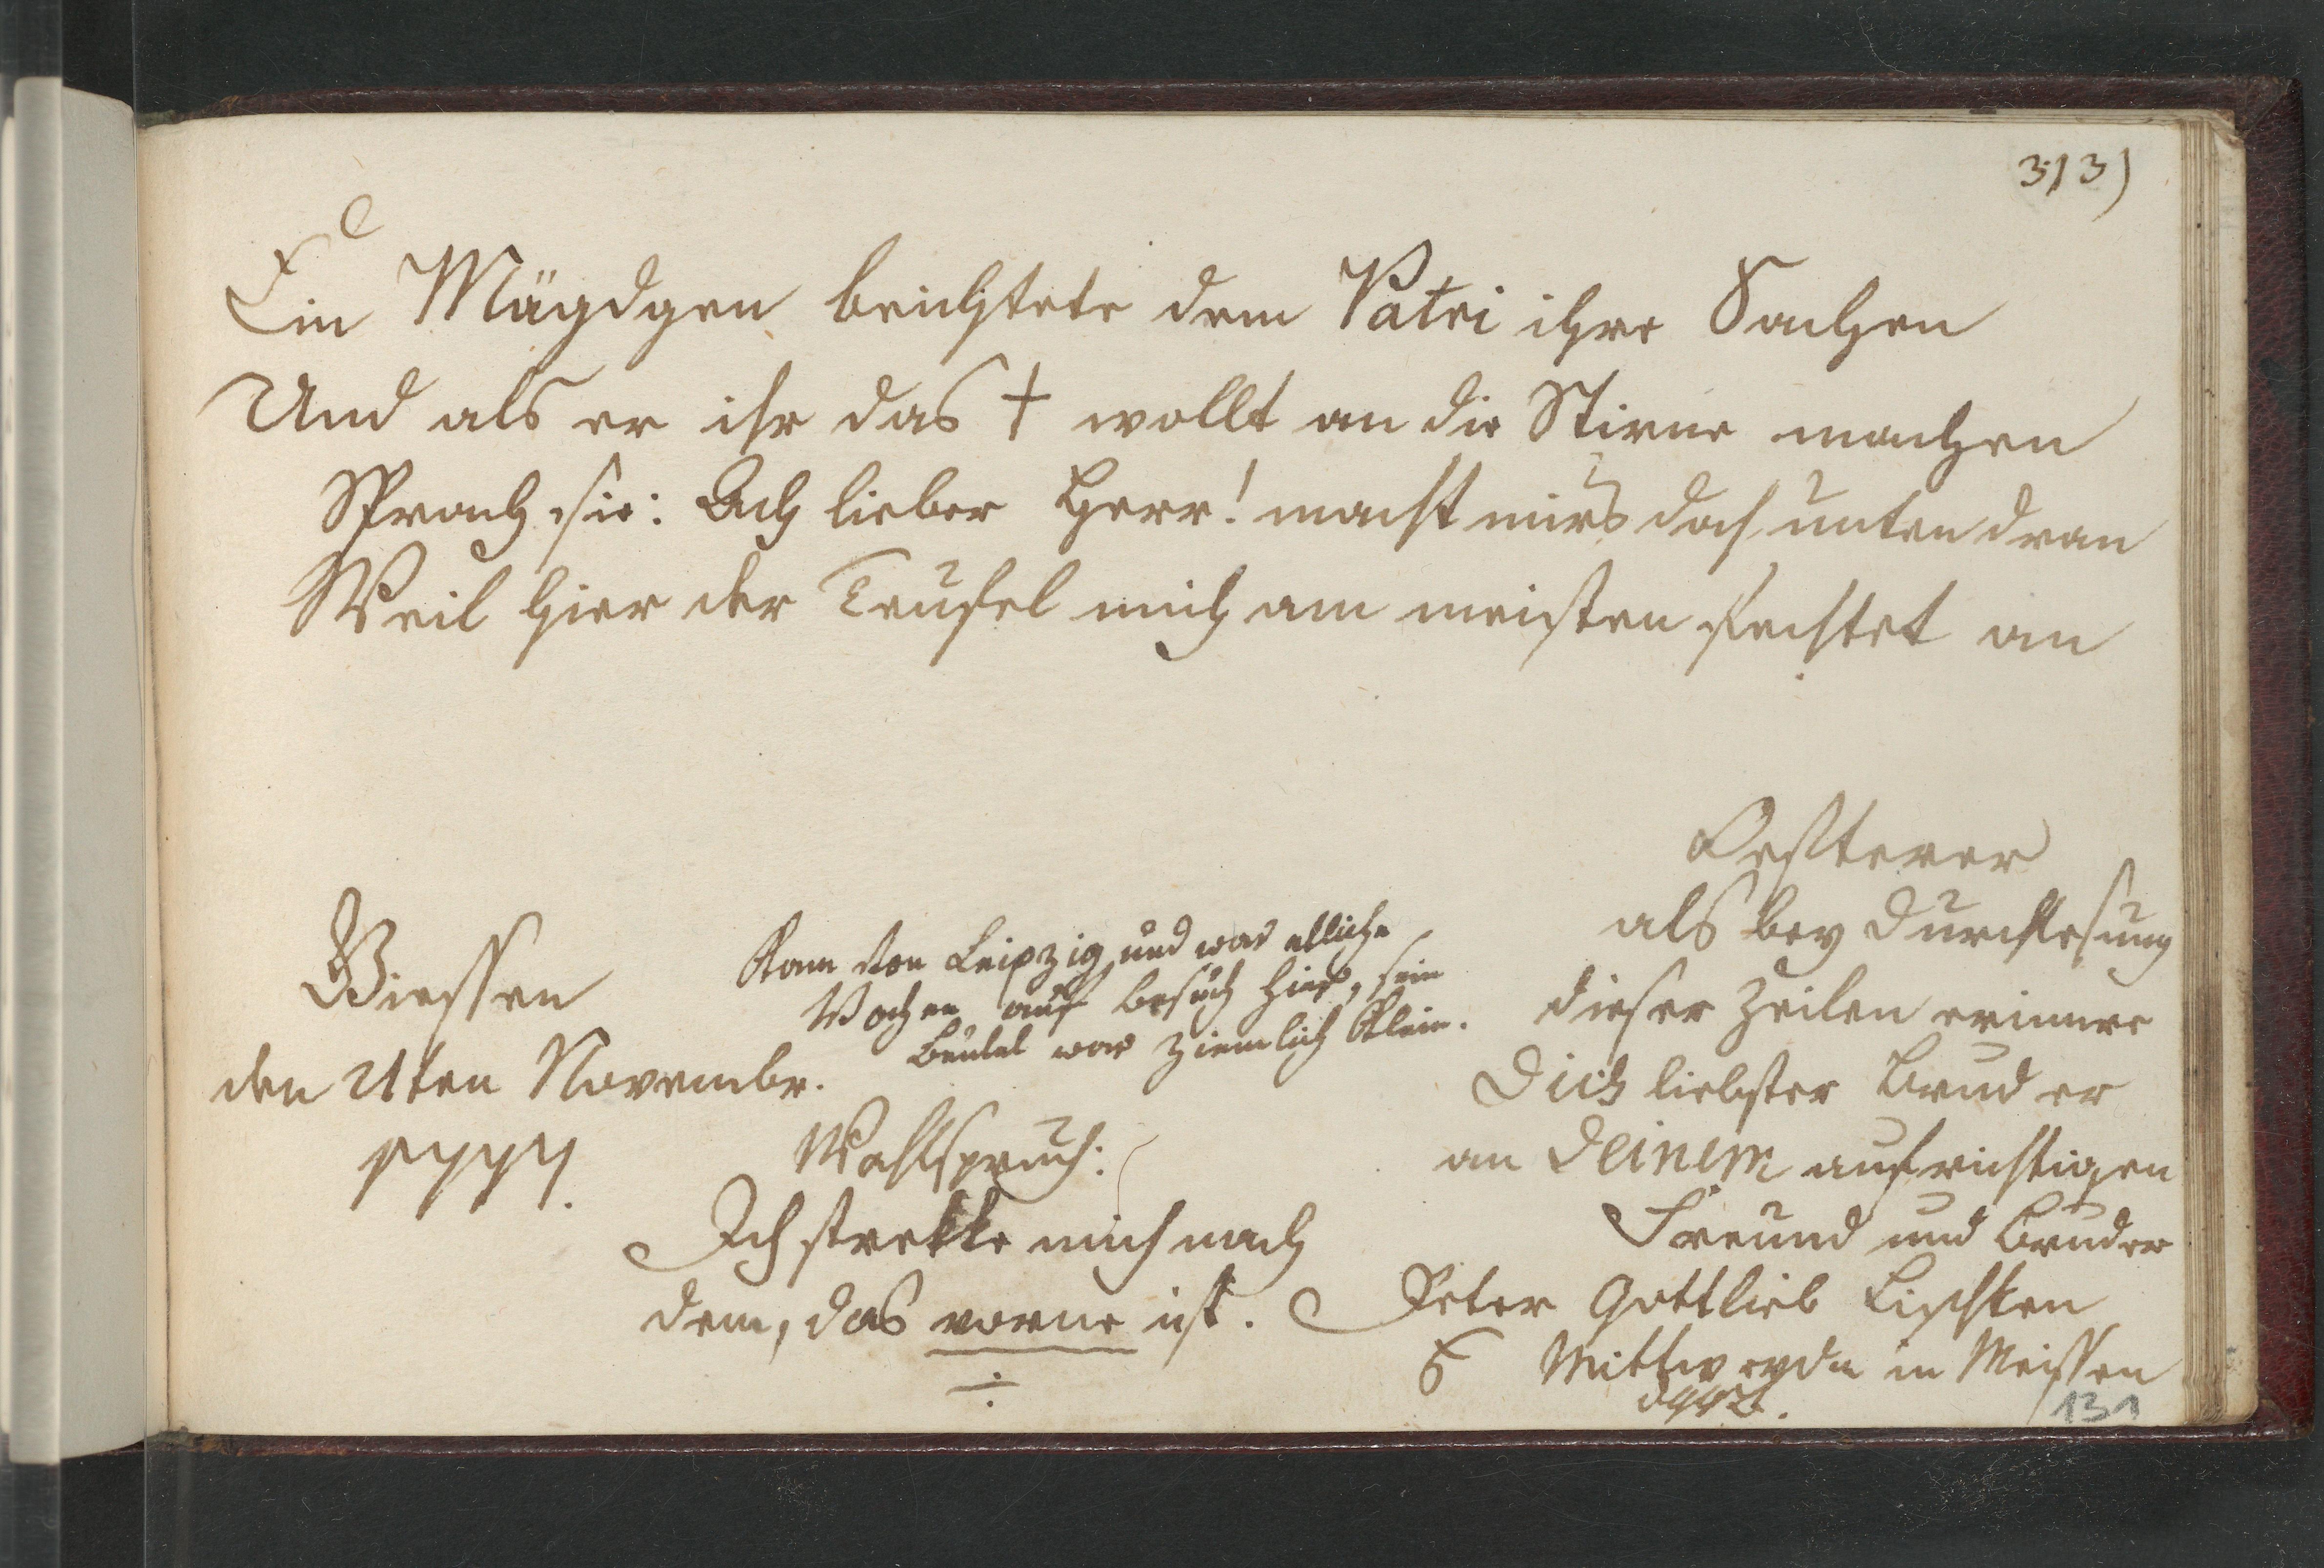 313)
Ein Mägdgen beichtete dem Patri ihre Sachen
Und als er ihr das † wollt an die Stirne machen
Sprach sie: Ach lieber Herr! macht mirs doch unten dran
Weil hier der Teufel mich am meisten fechtet an
Oefterer
als bey Durchlesung
dieser Zeilen erinnre
Dich liebster Bruder
an Deinem aufrichtigen
Freund und Bruder
Peter Gottlieb Lischken
Mittweyda in Meissen
Giessen
den 21ten Novembr.
1777.
Kam von Leipzig und war etliche
Wochen auf Besuch hier, sein
Beutel war ziemlich klein.
Wahlspruch:
Ich strekke mich nach
dem, das vorne ist.
131